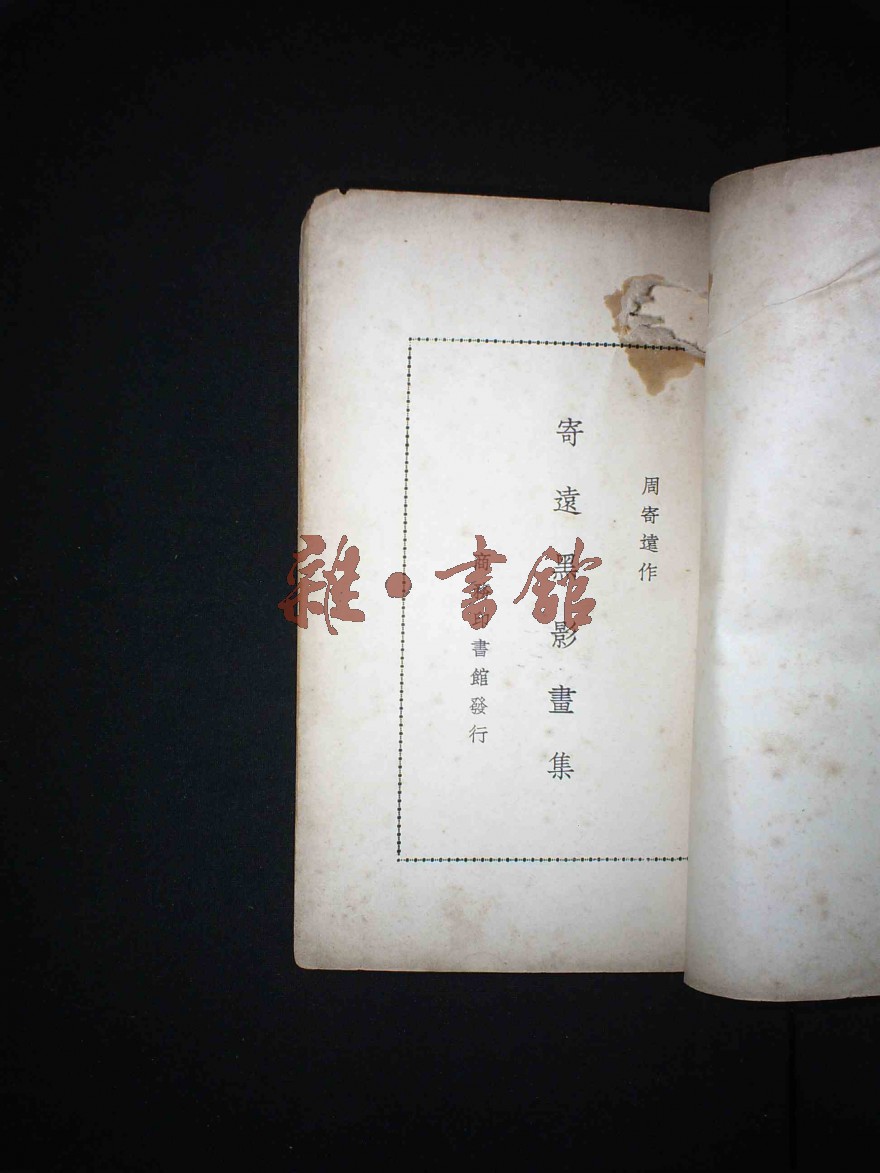 周寄遠作
寄遠黑影畫集
商務印書館發行
雜·書館